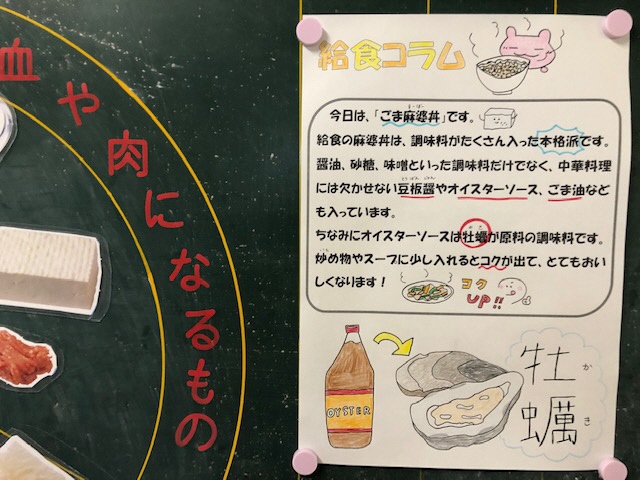 血や肉になるもの
給食コラム
今日は、「ごま麻婆丼」です。
給食の麻婆丼は、調味料がたくさん入った本格派です。
醤油、砂糖、味噌といった調味料だけでなく、中華料理
には欠かせない豆板醤やオイスターソース、ごま油など
も入っています。
ちなみにオイスターソースは牡蠣が原料の調味料です。
炒め物やスープに少し入れるとコクが出て、とてもおい
しくなります！
コク
UP!!
OYSTER
牡蠣
かき